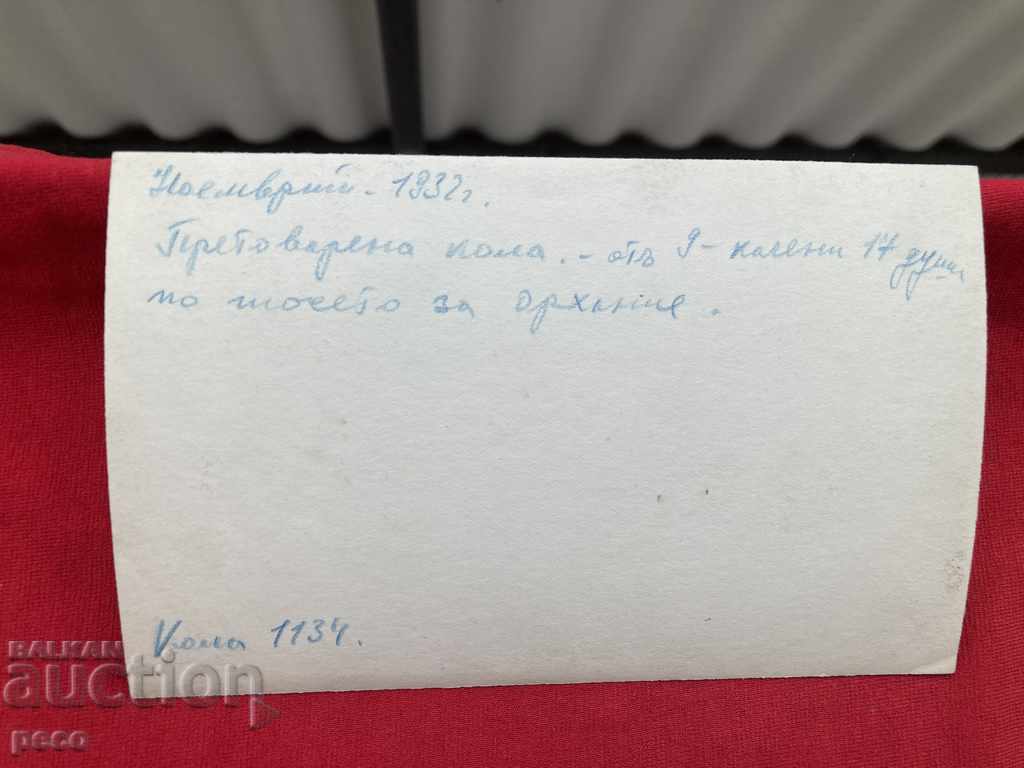 Ноемврий - 1932 г.
Претоварена кола. - отъ 9 - качени 17 души
по шосето за Орхание.
Кола 1134.
BALKAN
auction
peco